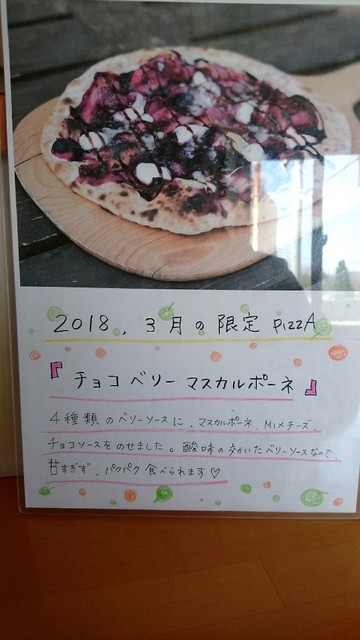 2018. 3月の限定 PizzA
『チョコベリー マスカルポーネ』
4種類のベリーソースに、マスカルポーネ、Mixチーズ、
チョコソースをのせました。酸味の効いたベリーソースなので、
甘すぎず、パクパク食べられます♡